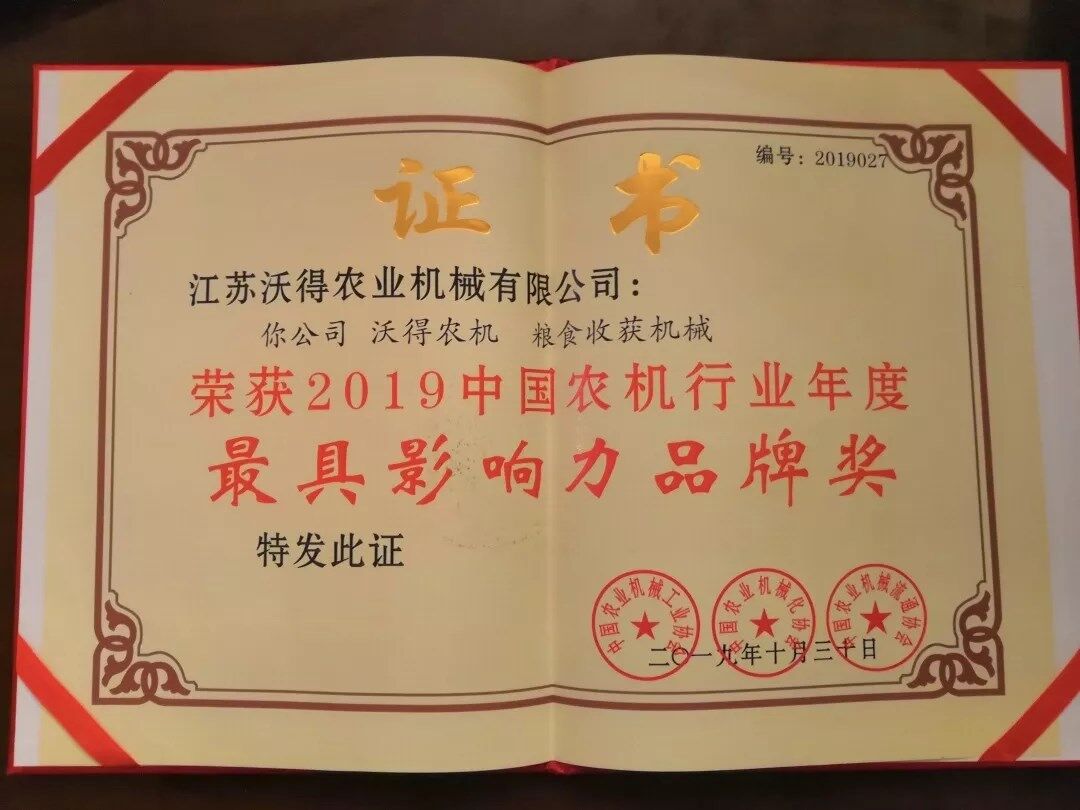 编号：2019027
证书
江苏沃得农业机械有限公司：
你公司 沃得农机 粮食收获机械
荣获2019中国农机行业年度
最具影响力品牌奖
特发此证
中国农业机械工业协会
中国农业机械化协会
中国农业机械流通协会
二〇一九年十月三十日